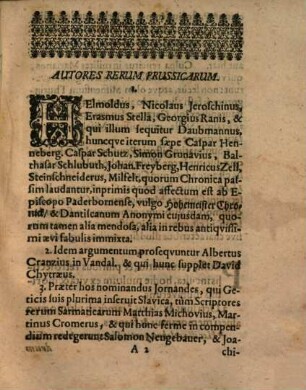 AUTORES RERUM PRUSSICARUM.
I.
HElmoldus, Nicolaus Jeroschinus,
Erasmus Stella, Georgius Ranis, &
qui illum sequitur Daubmannus,
huncqve iterum sæpe Caspar Hen-
neberg. Caspar Schutz, Simon Grunavius, Bal-
thasar Schlubuth, Johan. Freyberg, Henricus Zell,
Steinschneiderus, Milfelt, quorum Chronica pas-
sim laudantur, inprimis quod affectum est ab E-
piscopo Paderbornense, vulgo Hohemeister Chro-
nick/ & Dantiscanum Anonymi cujusdam, quo-
rum tamen alia mendosa, alia in rebus antiqvissi-
mi ævi fabulis immixta.
2. Idem argumentum proseqvuntur Albertus
Crantzius in Vandal. & qui hunc supplet David
Chytræus.
3. Præter hos nominandus Jornandes, qui Ge-
ticis suis plurima inseruit Slavica, tùm Scriptores
rerum Sarmaticarum Matthias Michovius, Mar-
tinus Cromerus, & qui hunc ferme in compen-
dium redegerunt Salomon Neugebauer, & Joa-
A 2
chi-